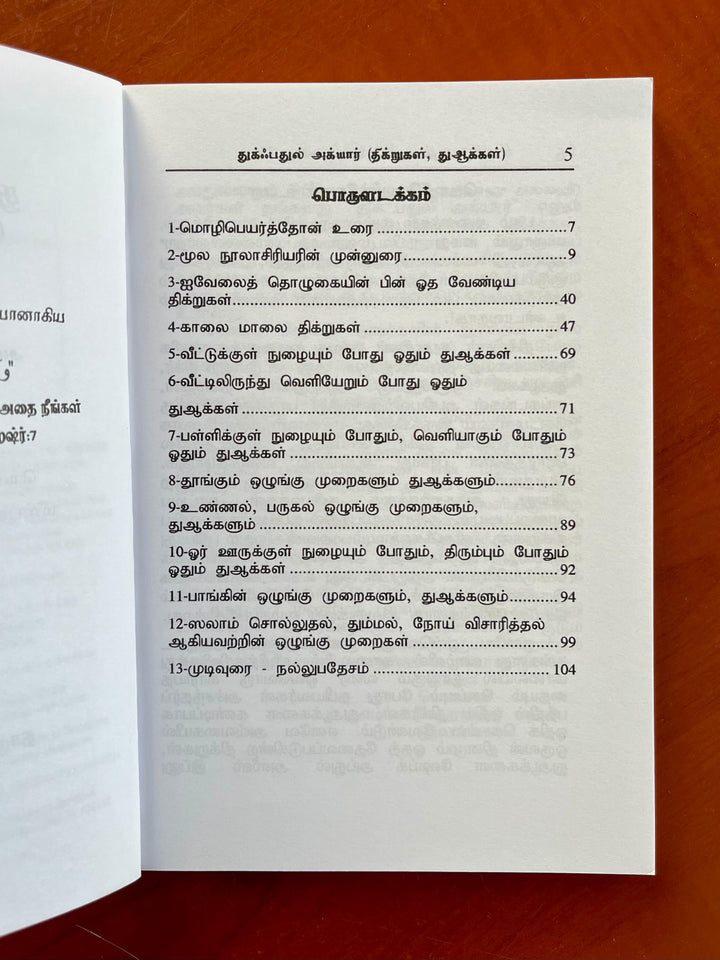 பானாகிய
அதை நீங்கள்
துக்ஃபதுல் அக்யார் (திக்றுகள், துஆக்கள்) 5
பொருளடக்கம்
1-மொழிபெயர்த்தோன் உரை ........................................ 7
2-மூல நூலாசிரியரின் முன்னுரை ................................... 9
3-ஐவேலைத் தொழுகையின் பின் ஓத வேண்டிய
திக்றுகள்................................................................ 40
4-காலை மாலை திக்றுகள் ........................................ 47
5-வீட்டுக்குள் நுழையும் போது ஓதும் துஆக்கள் ......... 69
6-வீட்டிலிருந்து வெளியேறும் போது ஓதும்
துஆக்கள் ................................................................ 71
7-பள்ளிக்குள் நுழையும் போதும், வெளியாகும் போதும்
ஓதும் துஆக்கள் ...................................................... 73
8-தூங்கும் ஒழுங்கு முறைகளும் துஆக்களும்............ 76
9-உண்ணல், பருகல் ஒழுங்கு முறைகளும்,
துஆக்களும் ............................................................ 89
10-ஓர் ஊருக்குள் நுழையும் போதும், திரும்பும் போதும்
ஓதும் துஆக்கள் ...................................................... 92
11-பாங்கின் ஒழுங்கு முறைகளும், துஆக்களும்.......... 94
12-ஸலாம் சொல்லுதல், தும்மல், நோய் விசாரித்தல்
ஆகியவற்றின் ஒழுங்கு முறைகள் ............................. 99
13-முடிவுரை - நல்லுபதேசம் .................................... 104